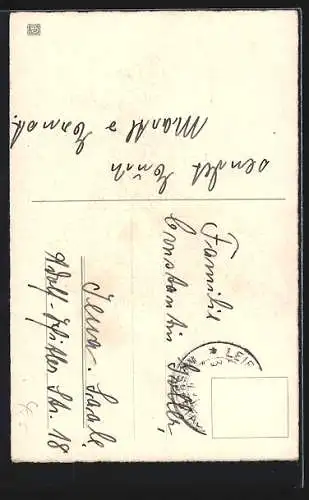 sendet Euch
Martl & Ernst.
Familie
Constantin
Jena-Saale
Adolf-Hitler Str. 18
LEIP